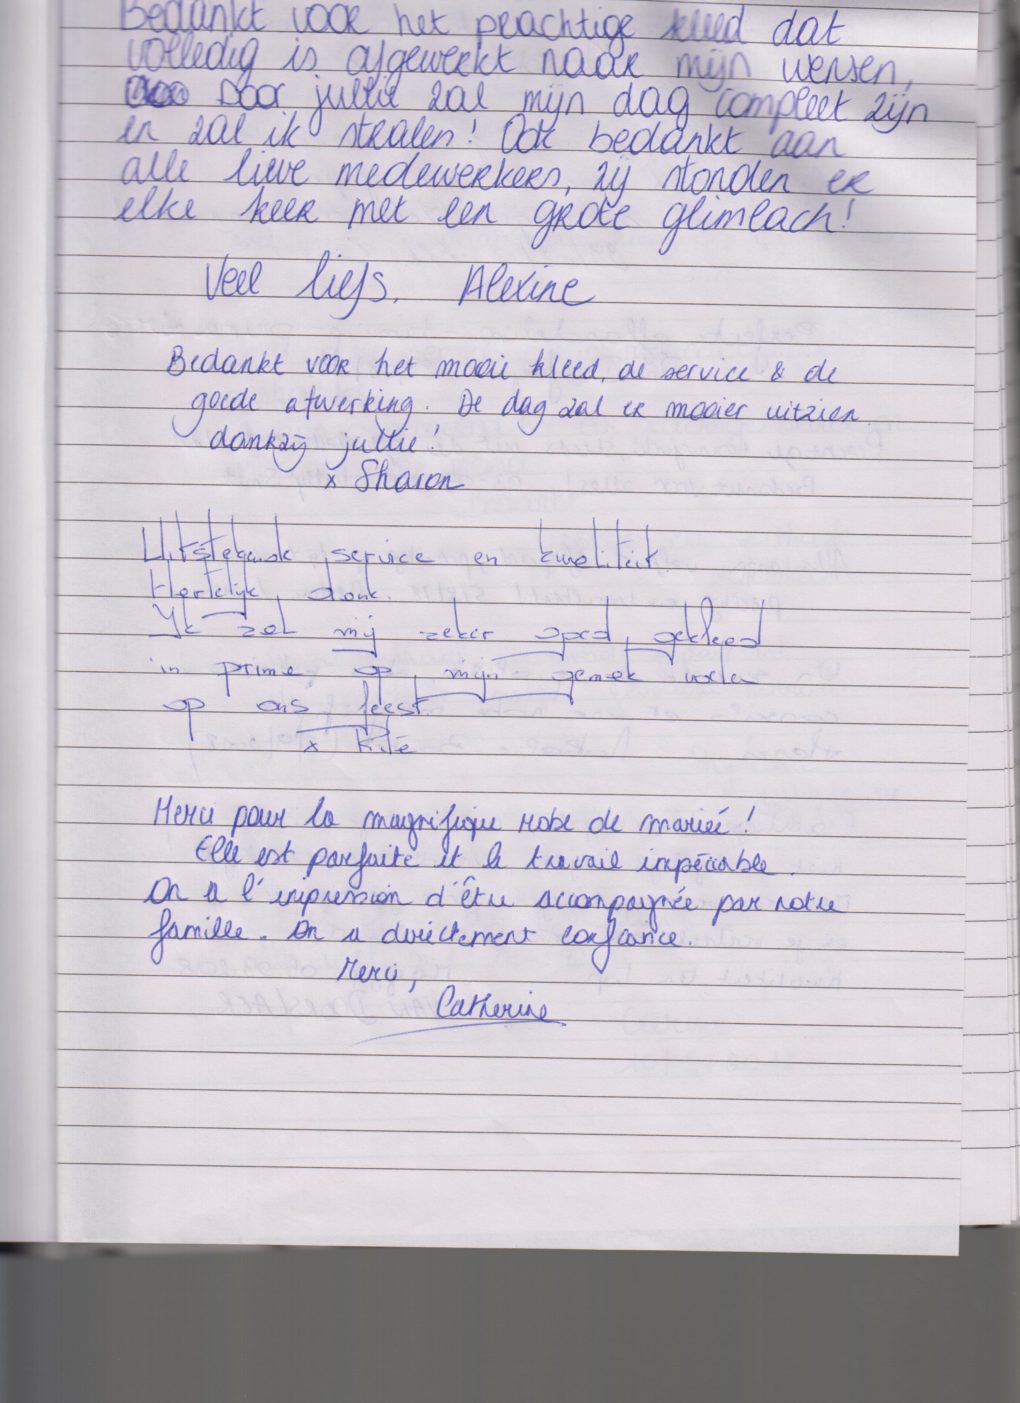 Bedankt voor het prachtige kleed dat
volledig is afgewerkt naar mijn wensen,
Door jullie zal mijn dag compleet zijn
en zal ik stralen! Ook bedankt aan
alle lieve medewerkers, zij stonden er
elke keer met een grote glimlach!
Veel liefs, Alexine
Bedankt voor het mooie kleed, de service & de
goede afwerking. De dag zal er mooier uitzien
dankzij jullie!
x Sharon
Uitstekende service en kwaliteit
Hartelijk dank.
Ik zal mij zeker goed gekleed
in prima op mijn gemak voelen
op ons feest
x
Merci pour la magnifique robe de mariée!
Elle est parfaite et le travail impécable.
On a l'impression d'être accompagnée par notre
famille. On a directement confiance.
Merci,
Catherine